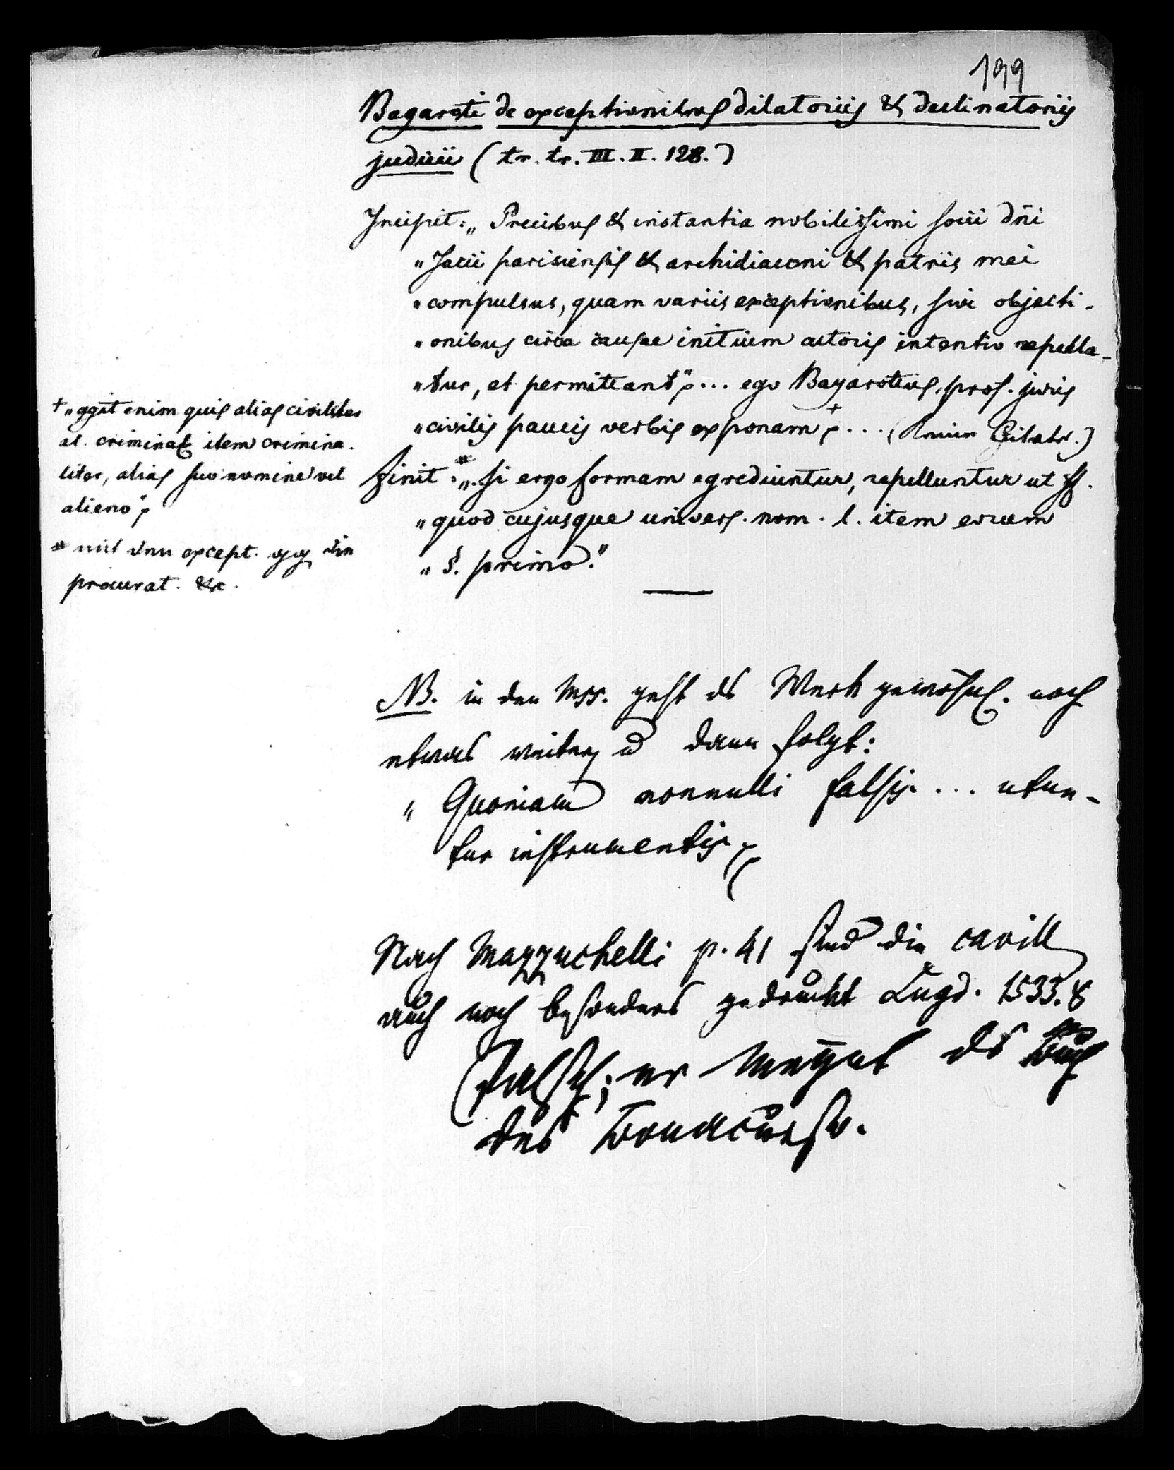 199
Bagaroti de exceptionibus dilatoriis & declinatoriis
judicii (tr. tr. III. II. 128.)
Incipit: „Precibus & instantia nobilissimi socii dñi
„Jacii parisiensis & archidiaconi & patris mei
„compulsus, quam variis exceptionibus, sive objecti-
„onibus circa causae initium actoris intentio repella-
„tur, et permittant" ... ego Bagarotus, prof. juris
„civilis paucis verbis exponam + ... (
Finit * „Si ergo formam egrediuntur, repelluntur ut ff.
„quod cujusque univers. nom. l. item eorum
„§. primo."
+ „agit enim quis alias civiliter
al. criminal item crimina-
liter, alias suo nomine vel
alieno"
* mit den except. gg die
procurat. &c.
NB. in den Mss. geht ds Werk gewöhnl. noch
etwas weiter u dann folgt:
„Quoniam nonnulli falsis ... utun-
tur instrumentis
Nach Mazzuchelli p. 41 sind die cavill
auch noch besonders gedruckt Lugd. 1533. 8
Falsch; er meynt ds Buch
des Bonacurso.